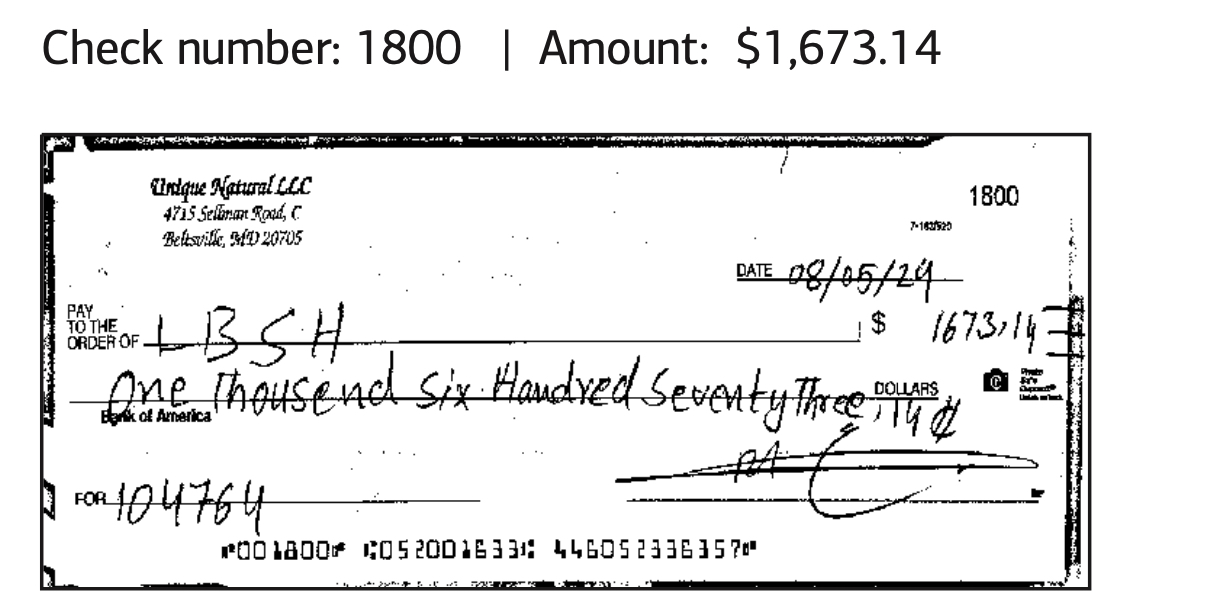 Check number: 1800 | Amount: $1,673.14
Unique Natural LLC
4715 Sellman Road, C
Beltsville, MD 20705
1800
7-163/520
DATE 08/05/24
PAY TO THE ORDER OF LBSH $ 1673.14
One Thousend Six Handred Seventy Three, 14 ¢ DOLLARS
Bank of America
Photo Safe Deposit®
FOR 104764
⑈001800⑈ ⑆052001633⑆ 446052336357⑈